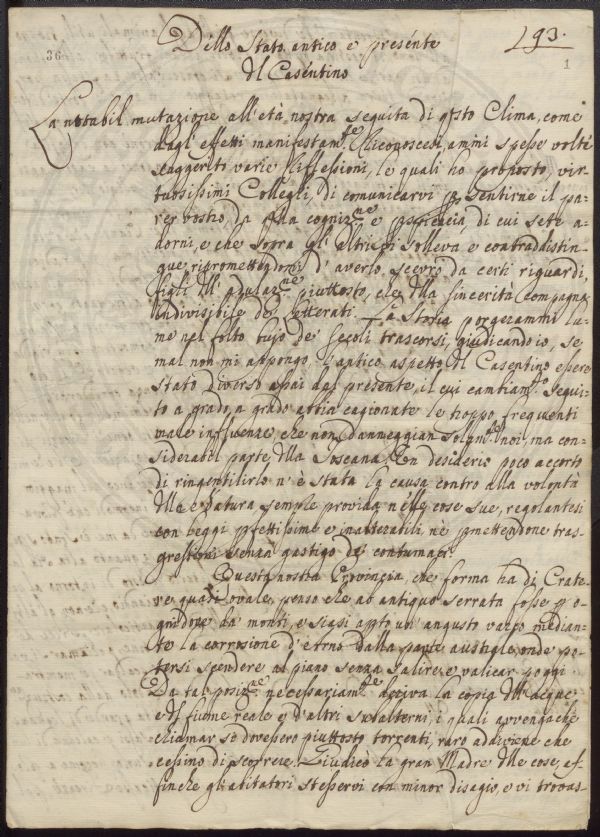 Dello Stato antico e presente
del Casentino
193.
36
1
La notabil mutazione all'età nostra seguita di qsto Clima, come
dagl'effetti manifestam.te riconoscesi, ammi spesse volte
suggerito varie riflessioni, le quali ho proposto, vir-
tuosissimi Colleghi, di comunicarvi p sentirne il pa-
rer vostro, da qlla cogniz.ne e pspicacia, di cui sete a-
dorni, e che sopra gl'altri vi solleva e contraddistin-
gue ripromettendomi d'averlo scevro da certi riguardi,
figli dll'adulaz.ne piuttosto, che dlla sincerità compagna
indivisibile de' letterati. La Storia porgerammi lu-
me nel folto bujo de' secoli trascorsi, giudicando io, se
mal non mi appongo, l'antico aspetto dl Casentino essere
stato diverso assai dal presente, il cui cambiam.to segui-
to a grado, a grado abbia cagionate le troppo frequenti
male influenze, che non danneggian solam.te noi, ma con-
siderabil parte dlla Toscana. Un desiderio poco accorto
di ringentilirlo n'è stata la causa contro alla volontà
dlla Natura sempre provida nelle cose sue, regolantesi
con leggi pfettissime e inalterabili nè pmettendone tras-
gressioni senza gastigo de' contumaci.
Questa nostra Provincia, che forma ha di Crate-
re quasi ovale, penso che ab antiquo serrata fosse p o-
gndove da' monti, e siasi apto un angusto varco median-
te la corrosione d'Arno dalla parte australe, onde po-
tersi scendere al piano senza salire e valicar poggi
Da tal posiz.ne necessariam.te deriva la copia dll'acque
e dl fiume reale e d'altri subalterni, i quali avvengachè
chiamar si dovessero piuttosto torrenti, raro addiviene che
cessino di scorrere. Giudicò la gran Madre dlle cose, af-
finchè gl'abitatori stesservi con minor disagio, e vi trovas-